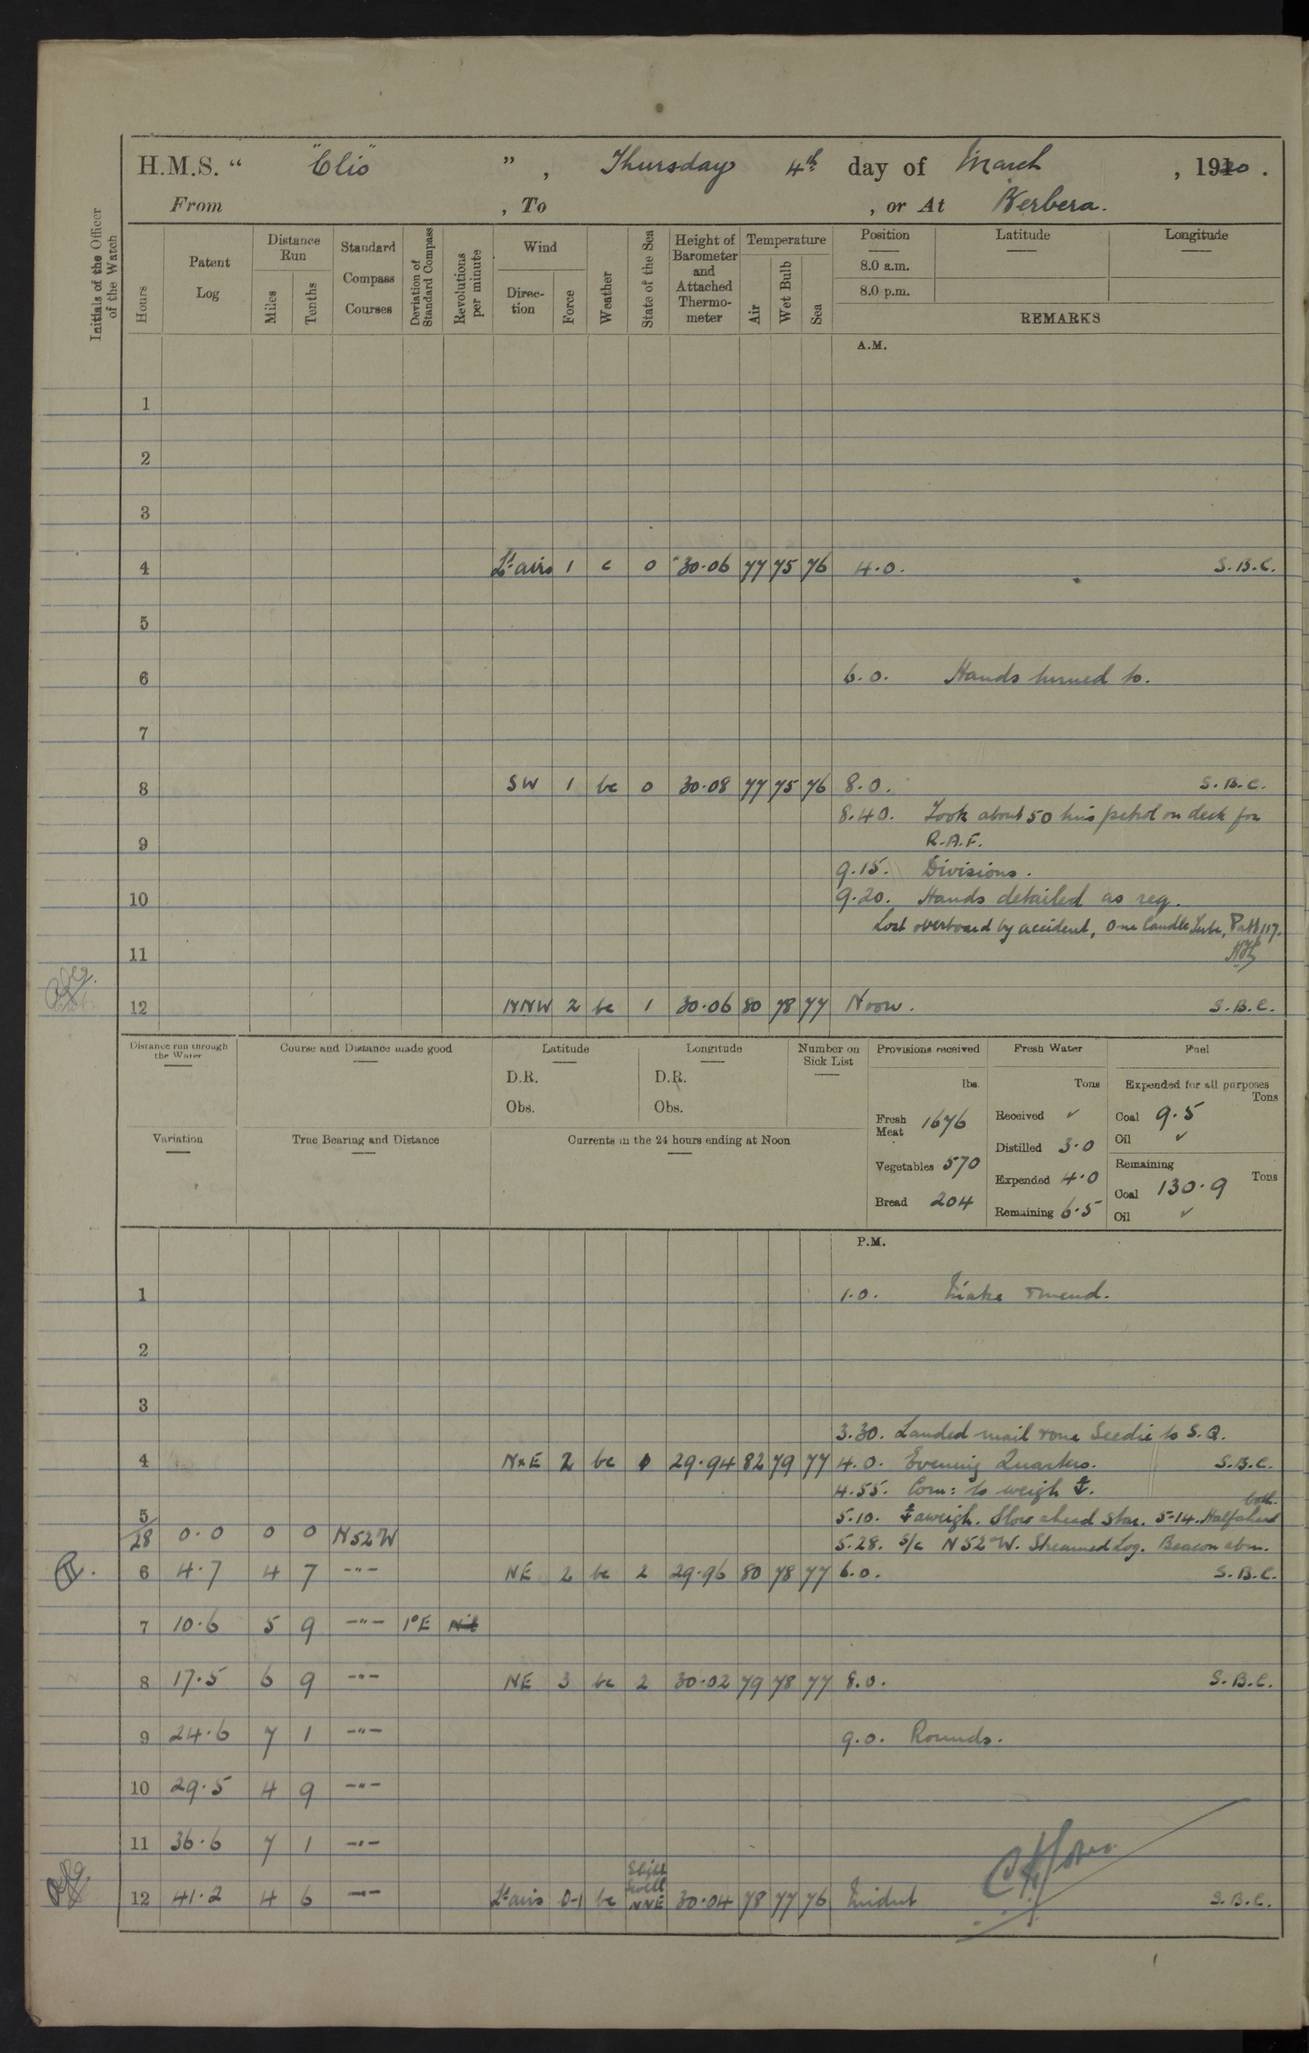 H.M.S. “ "Clio" ” , Thursday 4th day of March , 1920 .
From , To , or At Berbera.
Initials of the Officer of the Watch
Hours
Patent Log
Distance Run
Miles
Tenths
Standard Compass Courses
Deviation of Standard Compass
Revolutions per minute
Wind
Direction
Force
Weather
State of the Sea
Height of Barometer and Attached Thermometer
Temperature
Air
Wet Bulb
Sea
Position Latitude Longitude
8.0 a.m.
8.0 p.m.
REMARKS
A.M.
1
2
3
4 Lt airs 1 c 0 30.06 77 75 76 4.0. S.B.C.
5
6 6.0. Hands turned to.
7
8 SW 1 bc 0 30.08 77 75 76 8.0. S.B.C.
8.40. Took about 50 tins petrol on deck for
9 R.A.F.
9.15. Divisions.
10 9.20. Hands detailed as req.
Lost overboard by accident, One Candle Tube, Patt 117.
11
12 NNW 2 bc 1 30.06 80 78 77 Noon. S.B.C.
Distance run through the Water
Course and Distance made good
Latitude
D.R.
Obs.
Longitude
D.R.
Obs.
Number on Sick List
Provisions received
lbs.
Fresh Meat 1676
Vegetables 570
Bread 204
Fresh Water
Tons
Received ✓
Distilled 3.0
Expended 4.0
Remaining 6.5
Fuel
Expended for all purposes
Tons
Coal 9.5
Oil ✓
Remaining
Tons
Coal 130.9
Oil ✓
Variation
True Bearing and Distance
Currents in the 24 hours ending at Noon
P.M.
1 1.0. Make & mend.
2
3
3.30. Landed mail & one Seedie to S.Q.
4 NxE 2 bc 29.94 82 79 77 4.0. Evening Quarters. S.B.C.
4.55. Com: to weigh ⚓.
5.10. ⚓ aweigh. Slow ahead Star. 5.14. Half ahead both.
5/28 0.0 0 0 N52W 5.28. S/c N52°W. Streamed Log. Beacon abm.
6 4.7 4 7 -"- NE 2 bc 2 29.96 80 78 77 6.0. S.B.C.
7 10.6 5 9 -"- 1°E Nil
8 17.5 6 9 -"- NE 3 bc 2 30.02 79 78 77 8.0. S.B.C.
9 24.6 7 1 -"- 9.0. Rounds.
10 29.5 4 9 -"-
11 36.6 7 1 -"-
12 41.2 4 6 -"- Lt airs 0-1 bc Slight Swell NNE 30.04 78 77 76 Midnt S.B.C.